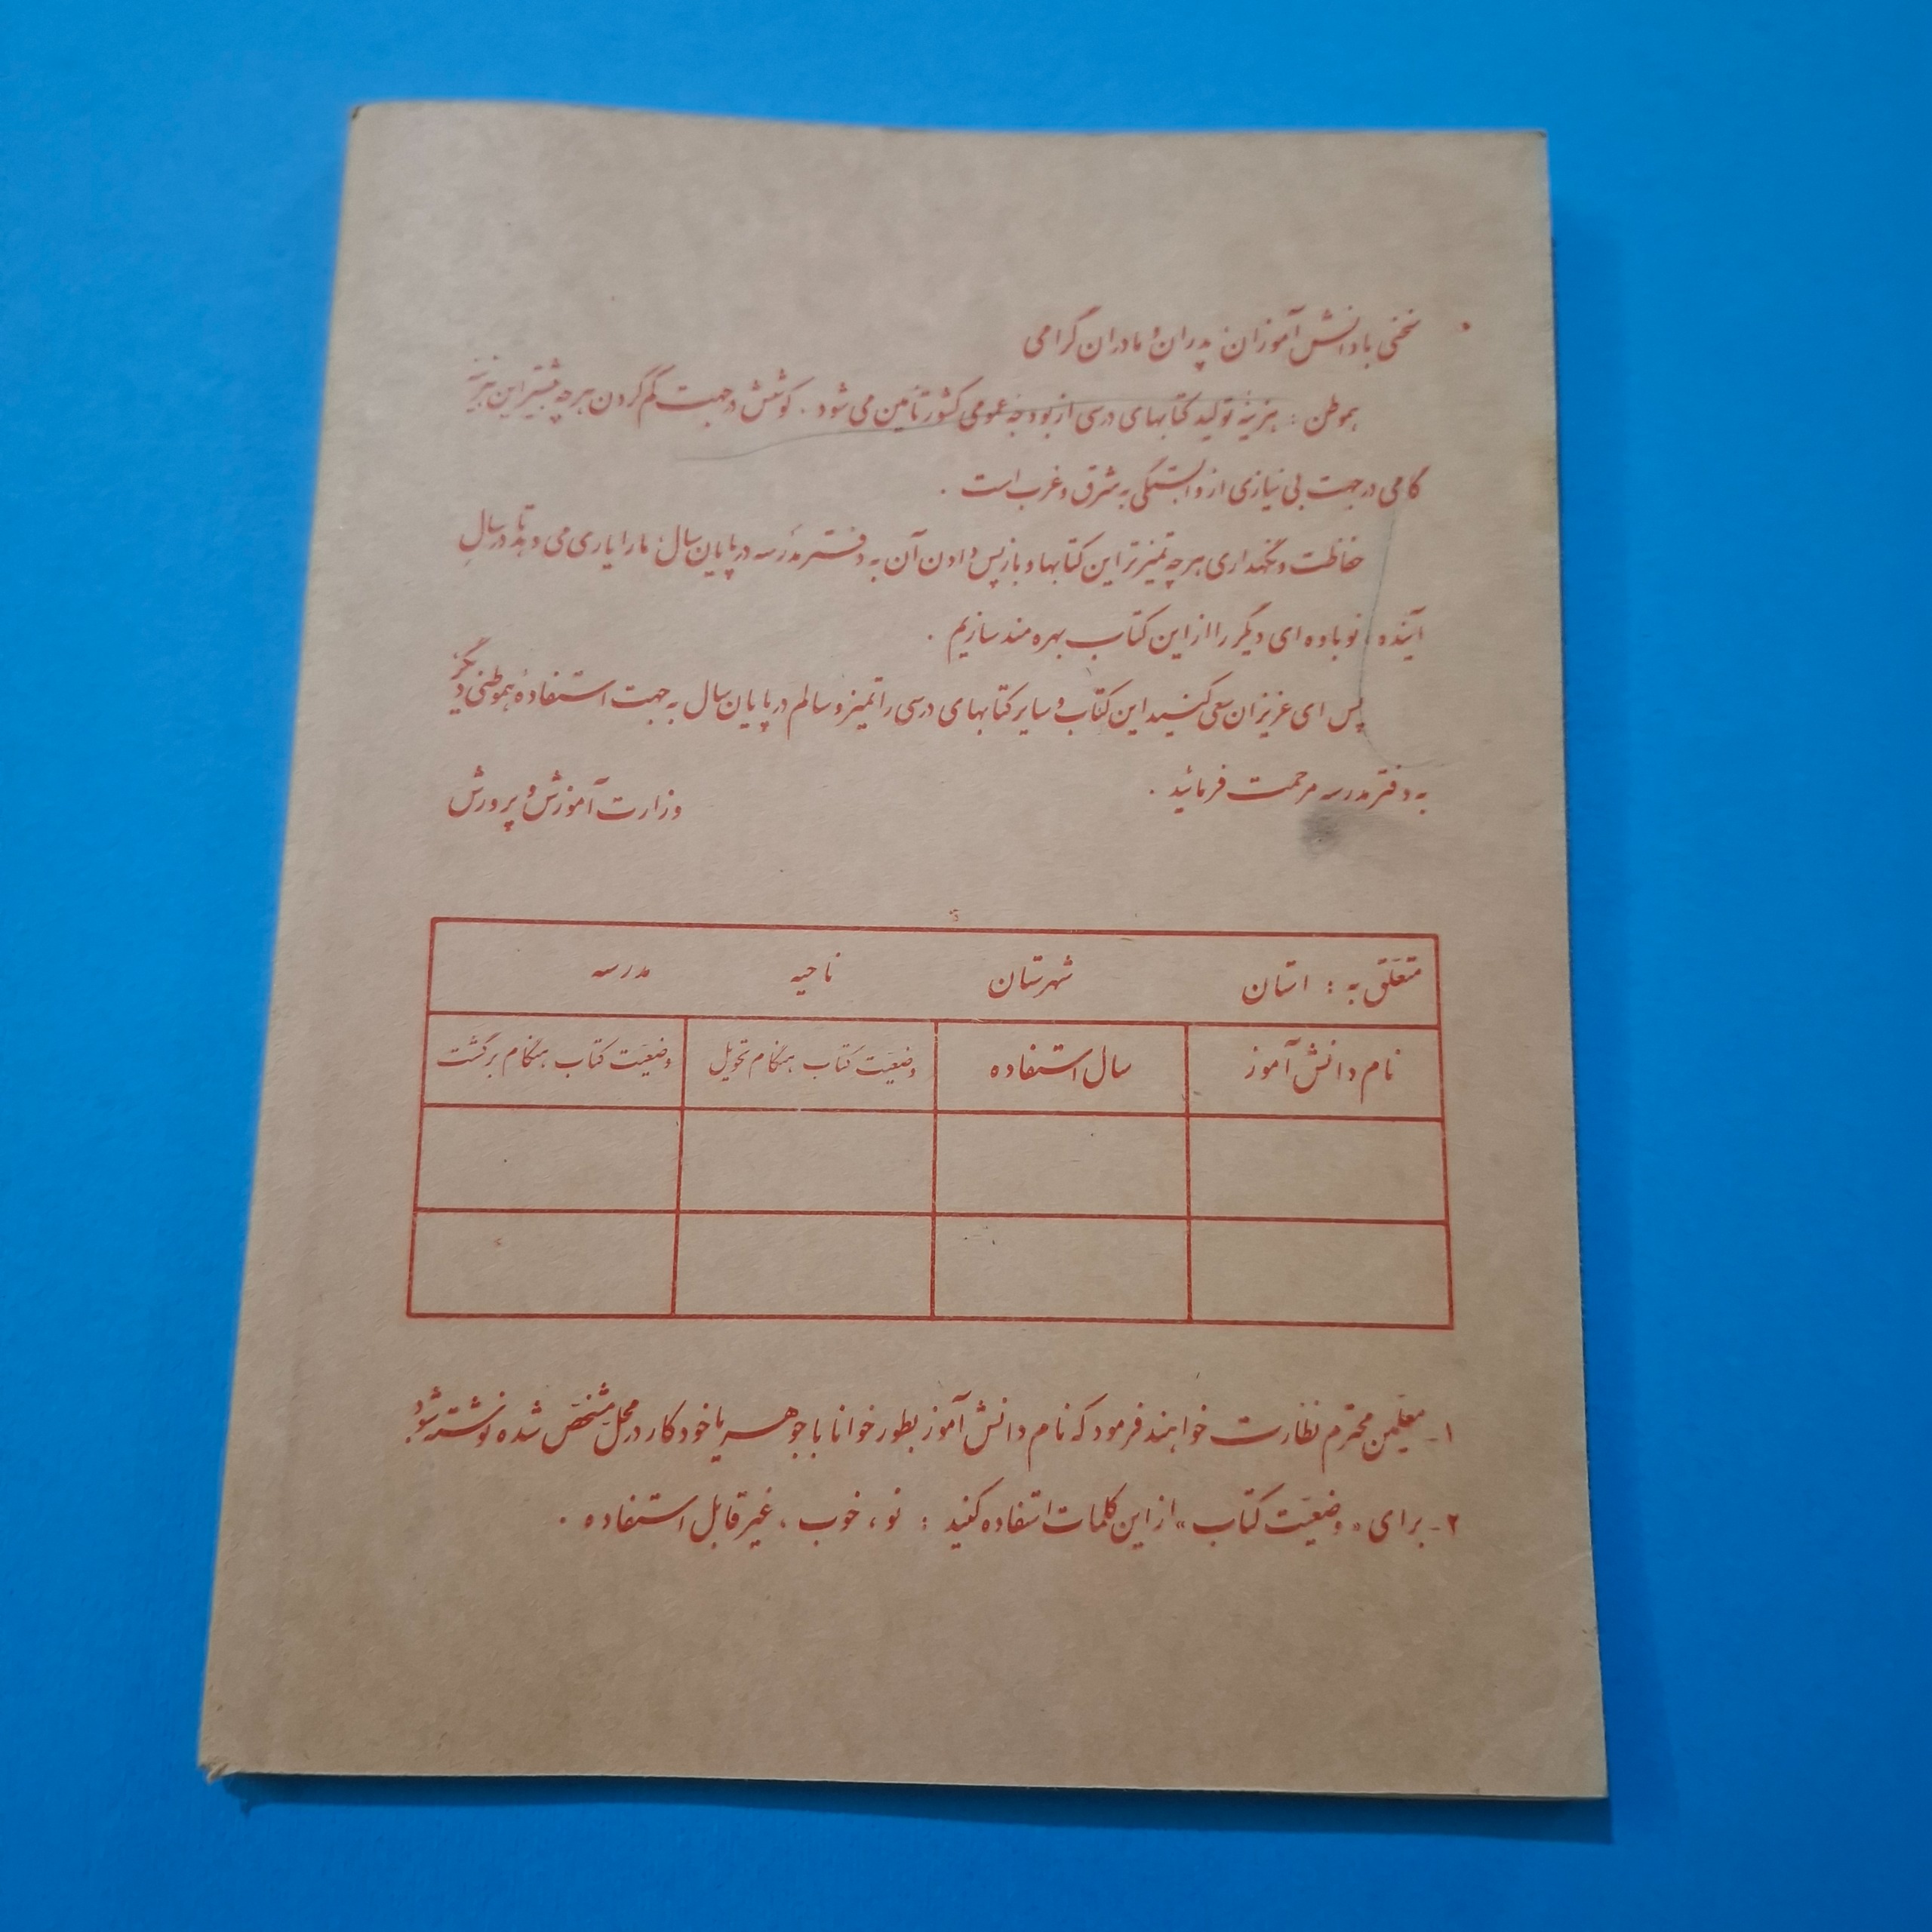 سخنی با دانش آموزان پدران و مادران گرامی
هموطن : هزینهٔ تولید کتابهای درسی از بودجهٔ عمومی کشور تأمین می شود . کوشش در جهت کم کردن هر چه بیشتر این هزینه
گامی در جهت بی نیازی از وابستگی به شرق و غرب است .
حفاظت و نگهداری هر چه تمیزتر این کتابها و باز پس دادن آن به دفتر مدرسه در پایان سال ما را یاری می دهد تا در سال
آینده نوباوه ای دیگر را از این کتاب بهره مند سازیم .
پس ای عزیزان سعی کنید این کتاب و سایر کتابهای درسی را تمیز و سالم در پایان سال به جهت استفادهٔ هموطنی دیگر
به دفتر مدرسه مرحمت فرمائید .
وزارت آموزش و پرورش
متعلق به : استان شهرستان ناحیه مدرسه
نام دانش آموز سال استفاده وضعیت کتاب هنگام تحویل وضعیت کتاب هنگام برگشت
۱- معلمین محترم نظارت خواهند فرمود که نام دانش آموز بطور خوانا با جوهر یا خودکار در محل مشخص شده نوشته شود .
۲- برای « وضعیت کتاب » از این کلمات استفاده کنید : نو ، خوب ، غیر قابل استفاده .